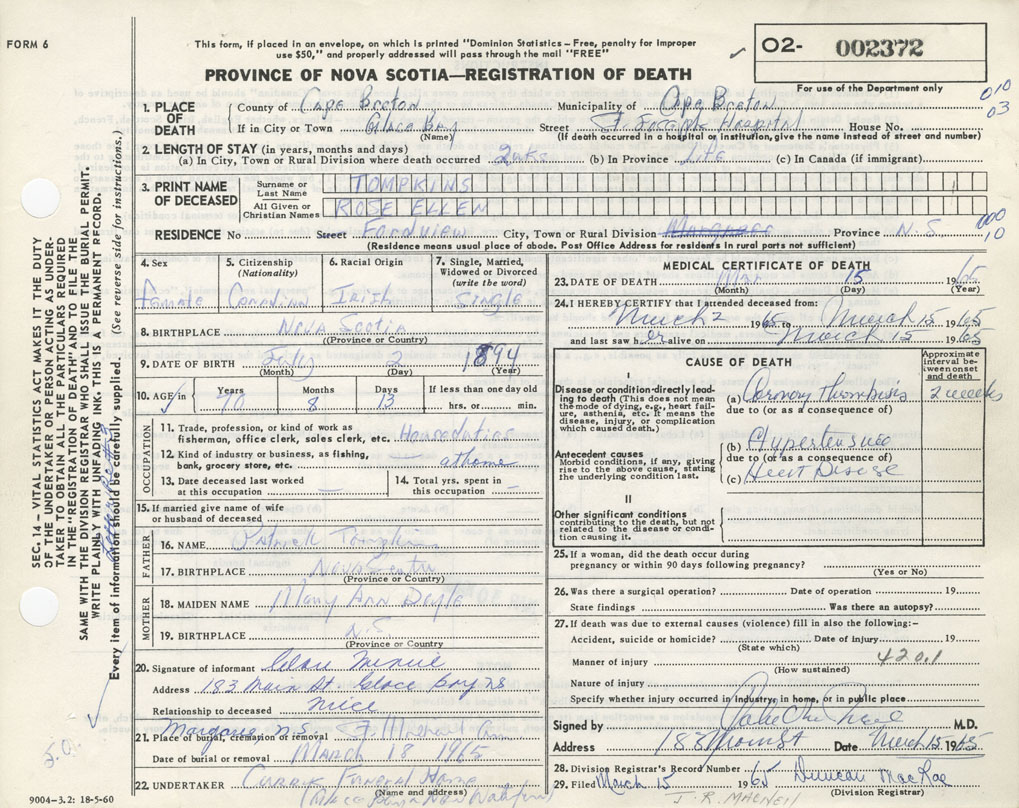 FORM 6
This form, if placed in an envelope, on which is printed "Dominion Statistics – Free, penalty for improper
use $50," and properly addressed will pass through the mail "FREE"
PROVINCE OF NOVA SCOTIA—REGISTRATION OF DEATH
O2- 002372
For use of the Department only
010
03
1. PLACE OF DEATH County of Cape Breton Municipality of Cape Breton
If in City or Town Glace Bay (Name) Street St Joseph Hospital House No.
(If death occurred in a hospital or institution, give the name instead of street and number)
2. LENGTH OF STAY (in years, months and days)
(a) In City, Town or Rural Division where death occurred 2 wks (b) In Province Life (c) In Canada (if immigrant)
3. PRINT NAME OF DECEASED Surname or Last Name TOMPKINS
All Given or Christian Names ROSE ELLEN
RESIDENCE No Street Fordview City, Town or Rural Division Margaree Province N.S
000
10
(Residence means usual place of abode. Post Office Address for residents in rural parts not sufficient)
4. Sex Female
5. Citizenship (Nationality) Canadian
6. Racial Origin Irish
7. Single, Married, Widowed or Divorced (write the word) Single
8. BIRTHPLACE Nova Scotia
(Province or Country)
9. DATE OF BIRTH July 2 1894
(Month) (Day) (Year)
10. AGE in Years 70 Months 8 Days 13 If less than one day old hrs. or min.
OCCUPATION
11. Trade, profession, or kind of work as fisherman, office clerk, sales clerk, etc. Houseduties
12. Kind of industry or business, as fishing, bank, grocery store, etc. at home
13. Date deceased last worked at this occupation
14. Total yrs. spent in this occupation
15. If married give name of wife or husband of deceased
FATHER
16. NAME Patrick Tompkins
17. BIRTHPLACE Nova Scotia
(Province or Country)
MOTHER
18. MAIDEN NAME Mary Ann Doyle
19. BIRTHPLACE N.S.
(Province or Country
20. Signature of informant
Address 183 Main St. Glace Bay NS
Relationship to deceased niece
21. Place of burial, cremation or removal Margaree N.S. St Michael
Date of burial or removal March 18 1965
22. UNDERTAKER Curry Funeral Home
(Name and address)
9004-3.2: 18-5-60
MEDICAL CERTIFICATE OF DEATH
23. DATE OF DEATH Mar 15 1965
(Month) (Day) (Year)
24. I HEREBY CERTIFY that I attended deceased from:
March 2 1965 to March 15 1965
and last saw her alive on March 15 1965
CAUSE OF DEATH
Approximate interval between onset and death
I
Disease or condition directly leading to death (This does not mean the mode of dying, e.g., heart failure, asthenia, etc. It means the disease, injury, or complication which caused death.)
(a) Coronary Thrombosis 2 weeks
due to (or as a consequence of)
Antecedent causes
Morbid conditions, if any, giving rise to the above cause, stating the underlying condition last.
(b) Hypertensive
due to (or as a consequence of)
(c) Heart Disease
II
Other significant conditions
contributing to the death, but not related to the disease or condition causing it.
25. If a woman, did the death occur during
pregnancy or within 90 days following pregnancy?
(Yes or No)
26. Was there a surgical operation? Date of operation 19
State findings Was there an autopsy?
27. If death was due to external causes (violence) fill in also the following:-
Accident, suicide or homicide? Date of injury 19
(State which)
Manner of injury 420.1
(How sustained)
Nature of injury
Specify whether injury occurred in industry, in home, or in public place
Signed by M.D.
Address 188 Main St Date March 15 1965
28. Division Registrar's Record Number
29. Filed March 15 1965 Duncan MacRae
(Division Registrar)
J. R. MACNEIL
SEC. 14 – VITAL STATISTICS ACT MAKES IT THE DUTY
OF THE UNDERTAKER OR PERSON ACTING AS UNDER-
TAKER TO OBTAIN ALL THE PARTICULARS REQUIRED
IN THE "REGISTRATION OF DEATH" AND TO FILE THE
SAME WITH THE DIVISION REGISTRAR WHO SHALL ISSUE THE BURIAL PERMIT.
WRITE PLAINLY WITH UNFADING INK. THIS IS A PERMANENT RECORD.
Every item of information should be carefully supplied. (See reverse side for instructions.)